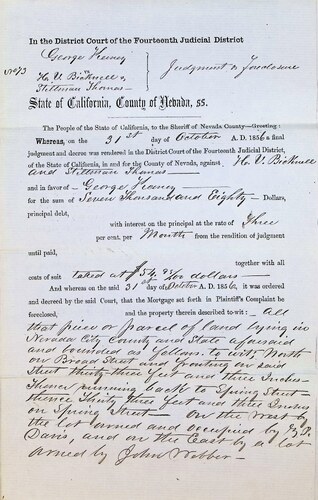 In the District Court of the Fourteenth Judicial District
George Kenney
No 73
H. V. Bicknell &
Stillman Thomas
Judgment & Foreclosure
State of California, County of Nevada, ss.
The People of the State of California, to the Sheriff of Nevada County—Greeting:
Whereas, on the 31st day of October A. D. 1856 a final
judgment and decree was rendered in the District Court of the Fourteenth Judicial District,
of the State of California, in and for the County of Nevada, against H. V. Bicknell
and Stillman Thomas
and in favor of George
for the sum of Seven Thousand and Eighty Dollars,
principal debt,
with interest on the principal at the rate of Three
per cent. per Month from the rendition of judgment
until paid,
together with all
costs of suit taxed at $54. dollars
And whereas on the said 31st day of October A. D. 1856, it was ordered
and decreed by the said Court, that the Mortgage set forth in Plaintiff's Complaint be
foreclosed, and the property therein described to-wit: All
that piece or parcel of land lying in
Nevada City County and State aforesaid
and bounded as follows to wit: North
on Broad Street and fronting on said
Street thirty three feet and three Inches
Thence running back to Spring Street
thence Thirty three feet and three Inches
on Spring Street On the West by
the lot owned and occupied by
Davis, and on the East by a lot
owned by John Webber